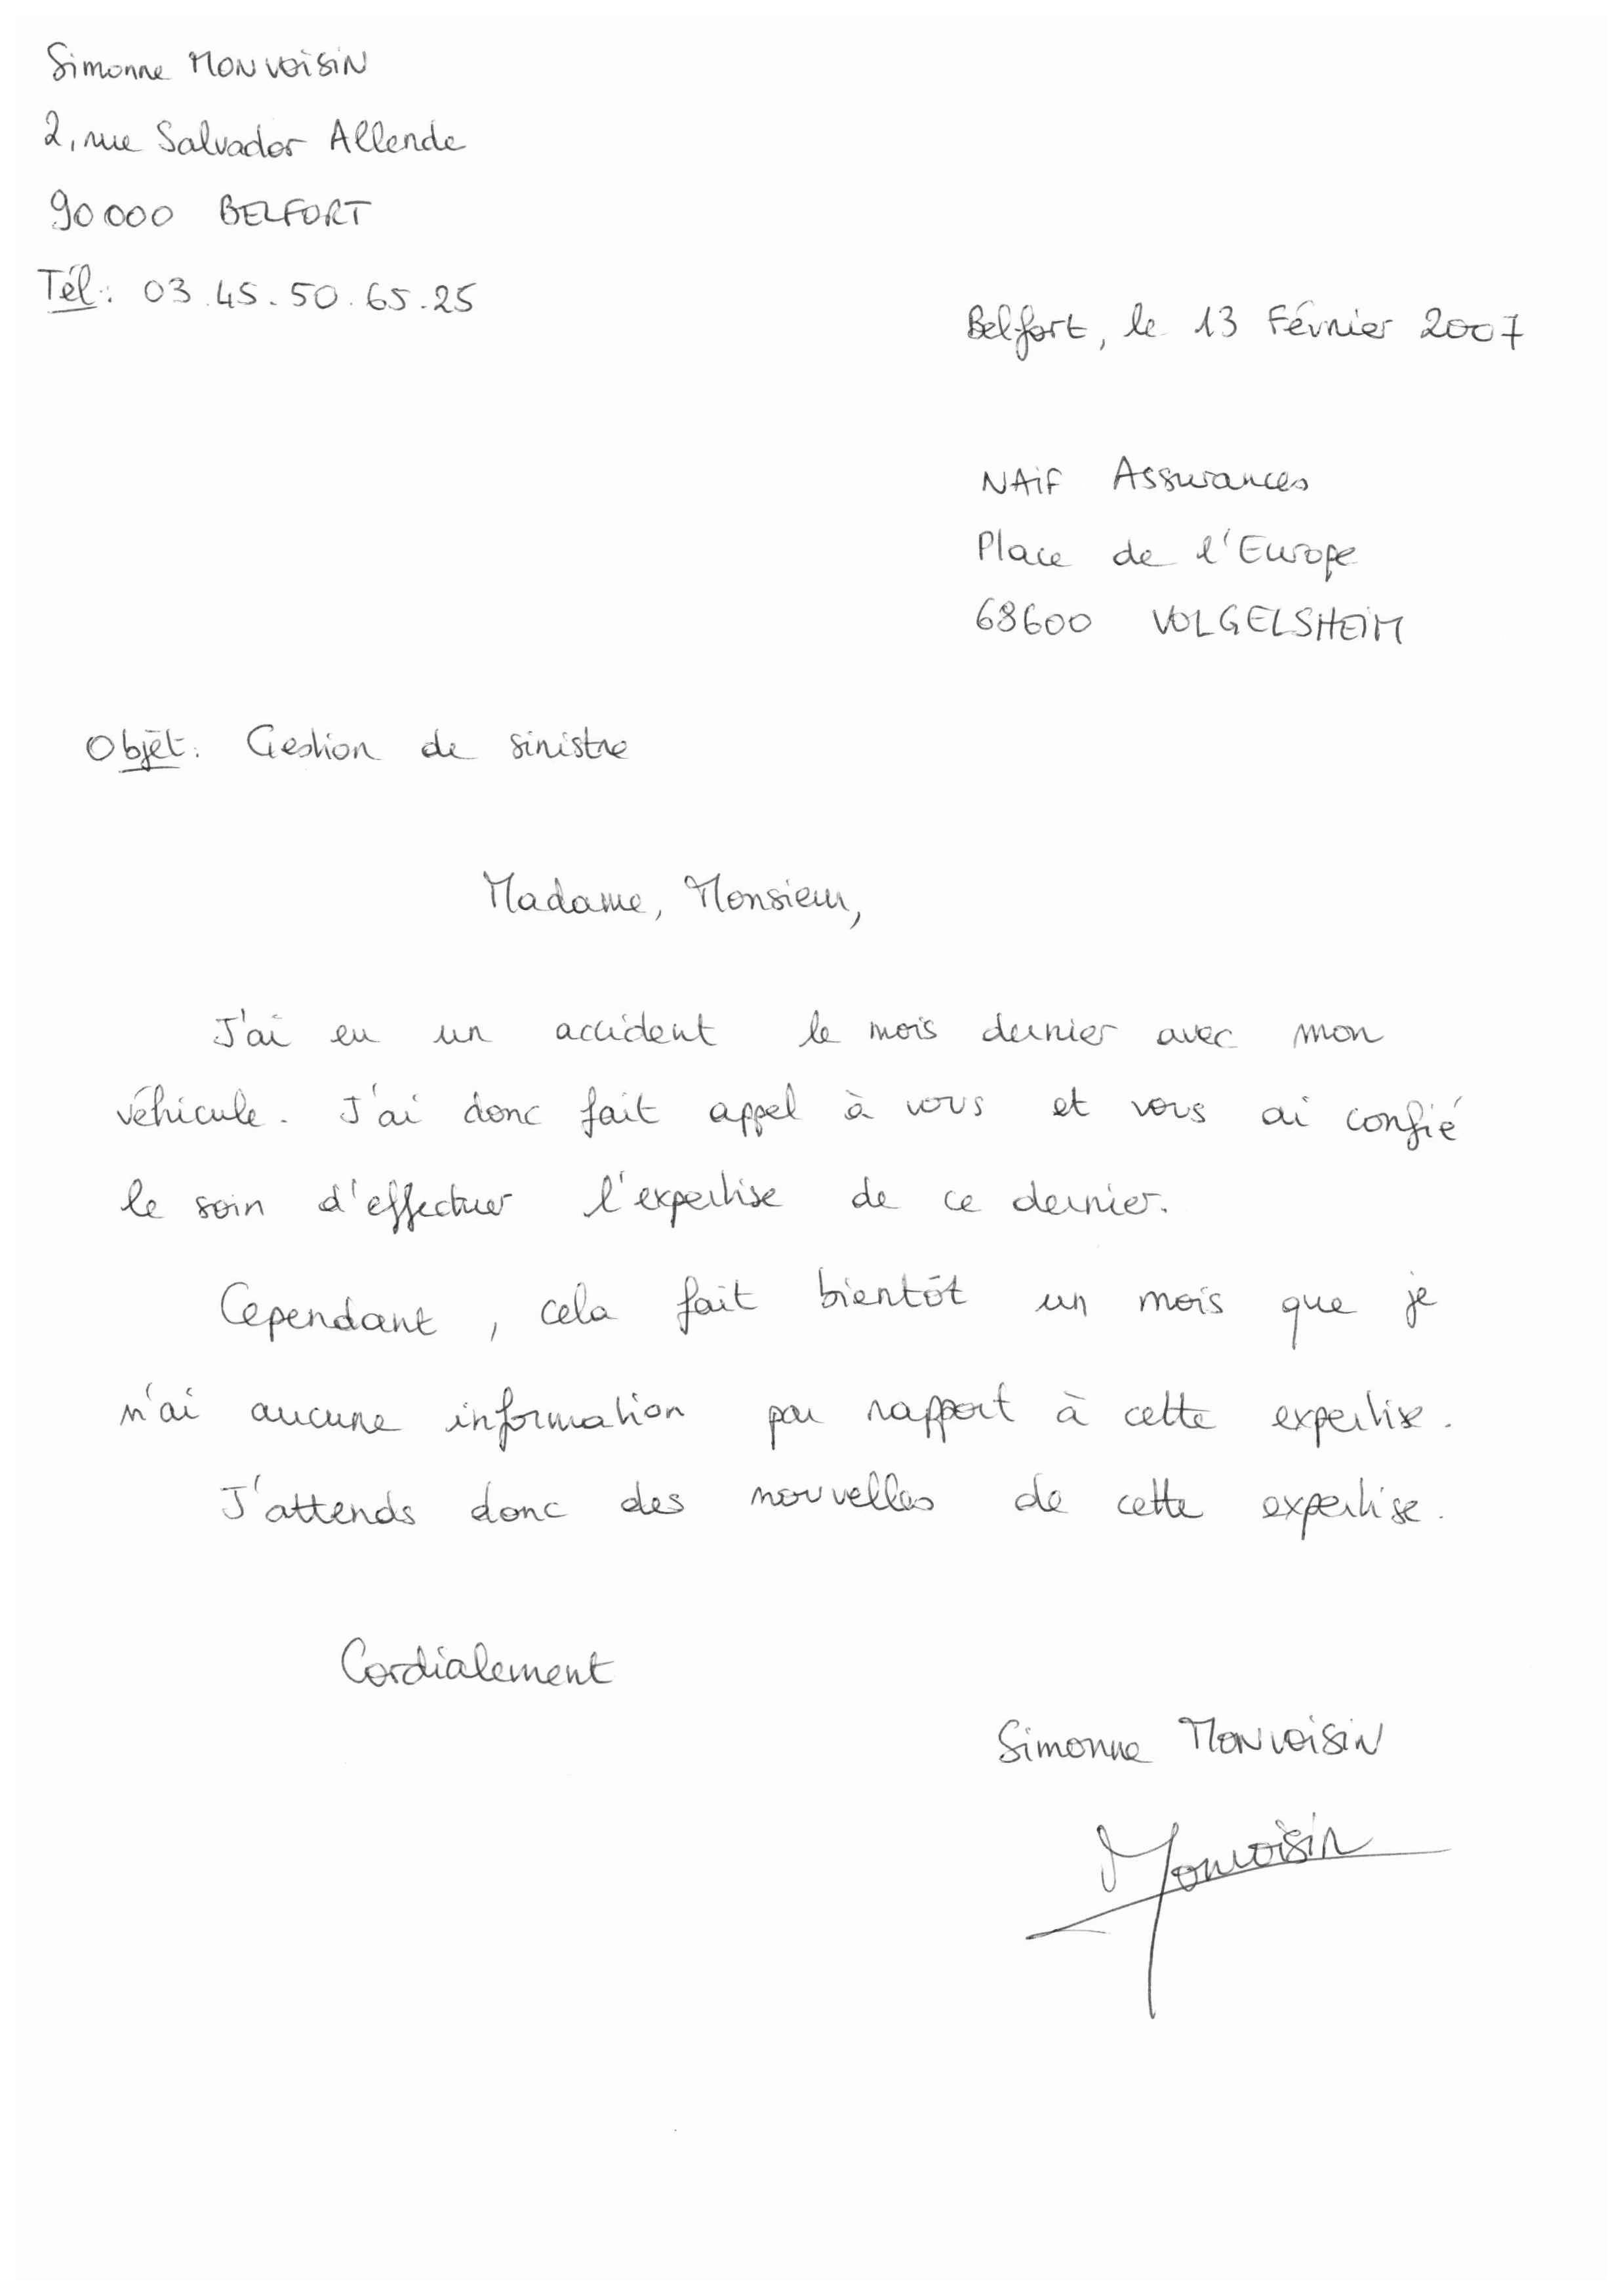 Simonne MONVOISIN
2, rue Salvador Allende
90000 BELFORT
Tél: 03.45.50.65.25
Belfort, le 13 Février 2007
NAIF Assurances
Place de l'Europe
68600 VOLGELSHEIM
Objet: Gestion de sinistre
Madame, Monsieur,
J'ai eu un accident le mois dernier avec mon
véhicule. J'ai donc fait appel à vous et vous ai confié
le soin d'effectuer l'expertise de ce dernier.
Cependant, cela fait bientôt un mois que je
n'ai aucune information par rapport à cette expertise.
J'attends donc des nouvelles de cette expertise.
Cordialement
Simonne MONVOISIN
Monvoisin